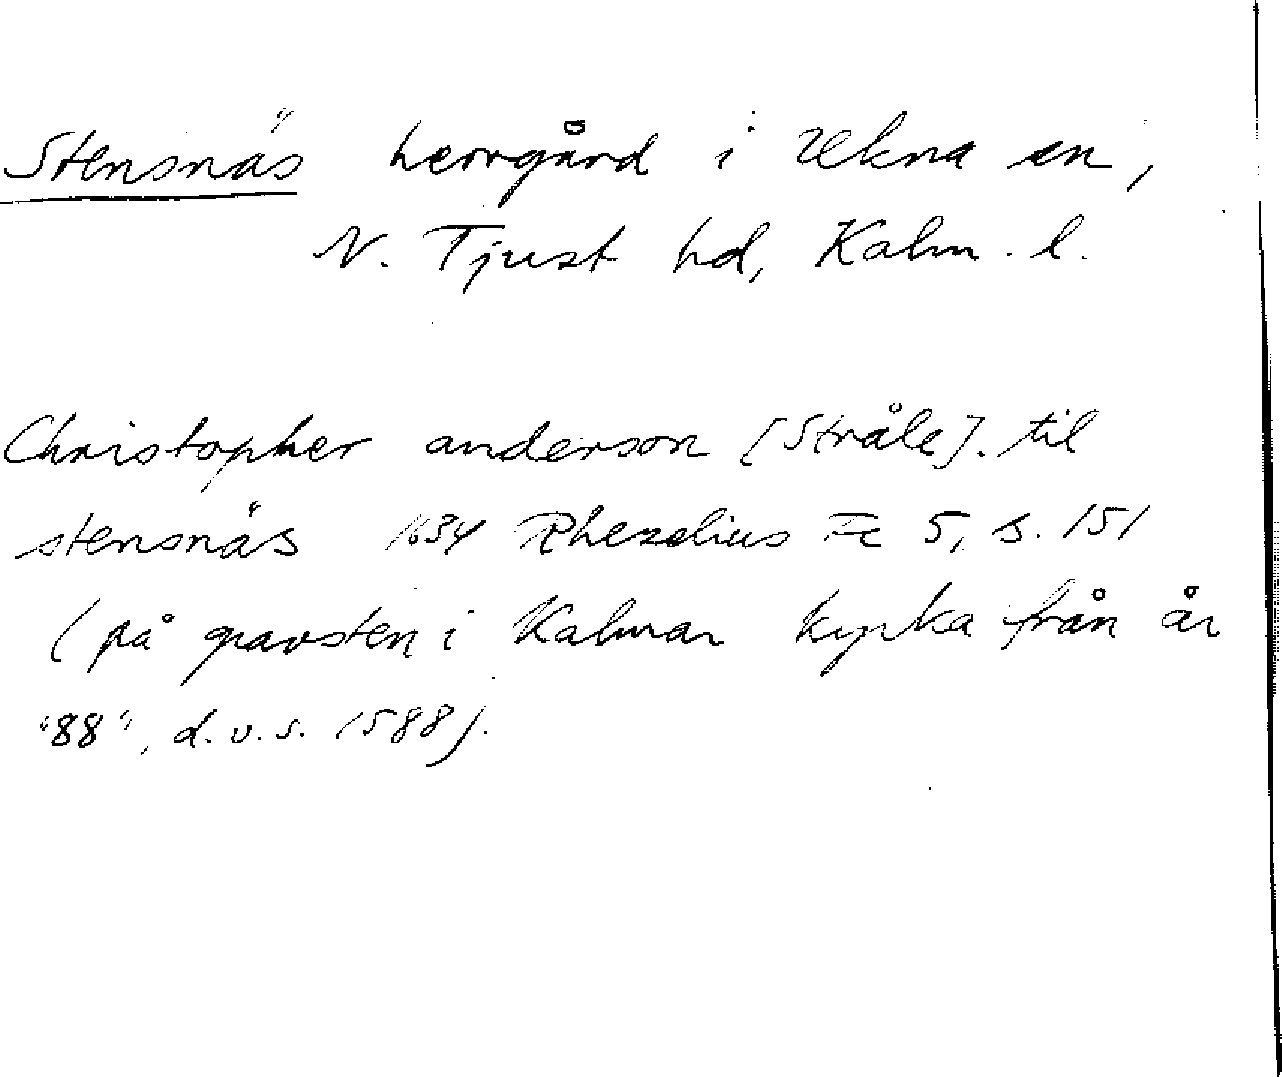 Stensnäs herrgård i Ukna sn,
N. Tjust hd, Kalm. l.
Christopher anderson [Stråle]. til
stensnäs 1634 Rhezelius Fc 5, s. 151
(på gravsten i Kalmar kyrka från år
"88", d.v.s. 1588).